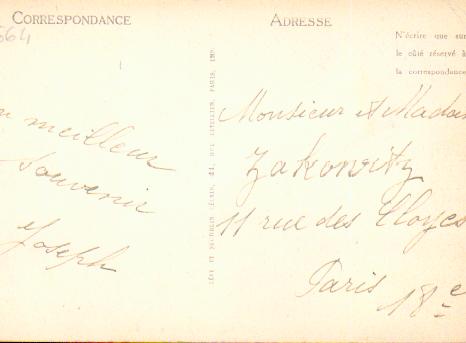 CORRESPONDANCE
ADRESSE
564
N'écrire que sur
le côté réservé à
la correspondance
n meilleur
Souvenir
Joseph
LÉVY ET NEURDEIN RÉUNIS, 44, RUE LETELLIER, PARIS, 15e
Monsieur et Madam
Zakovitz
11 rue des Cloÿes
Paris 18e